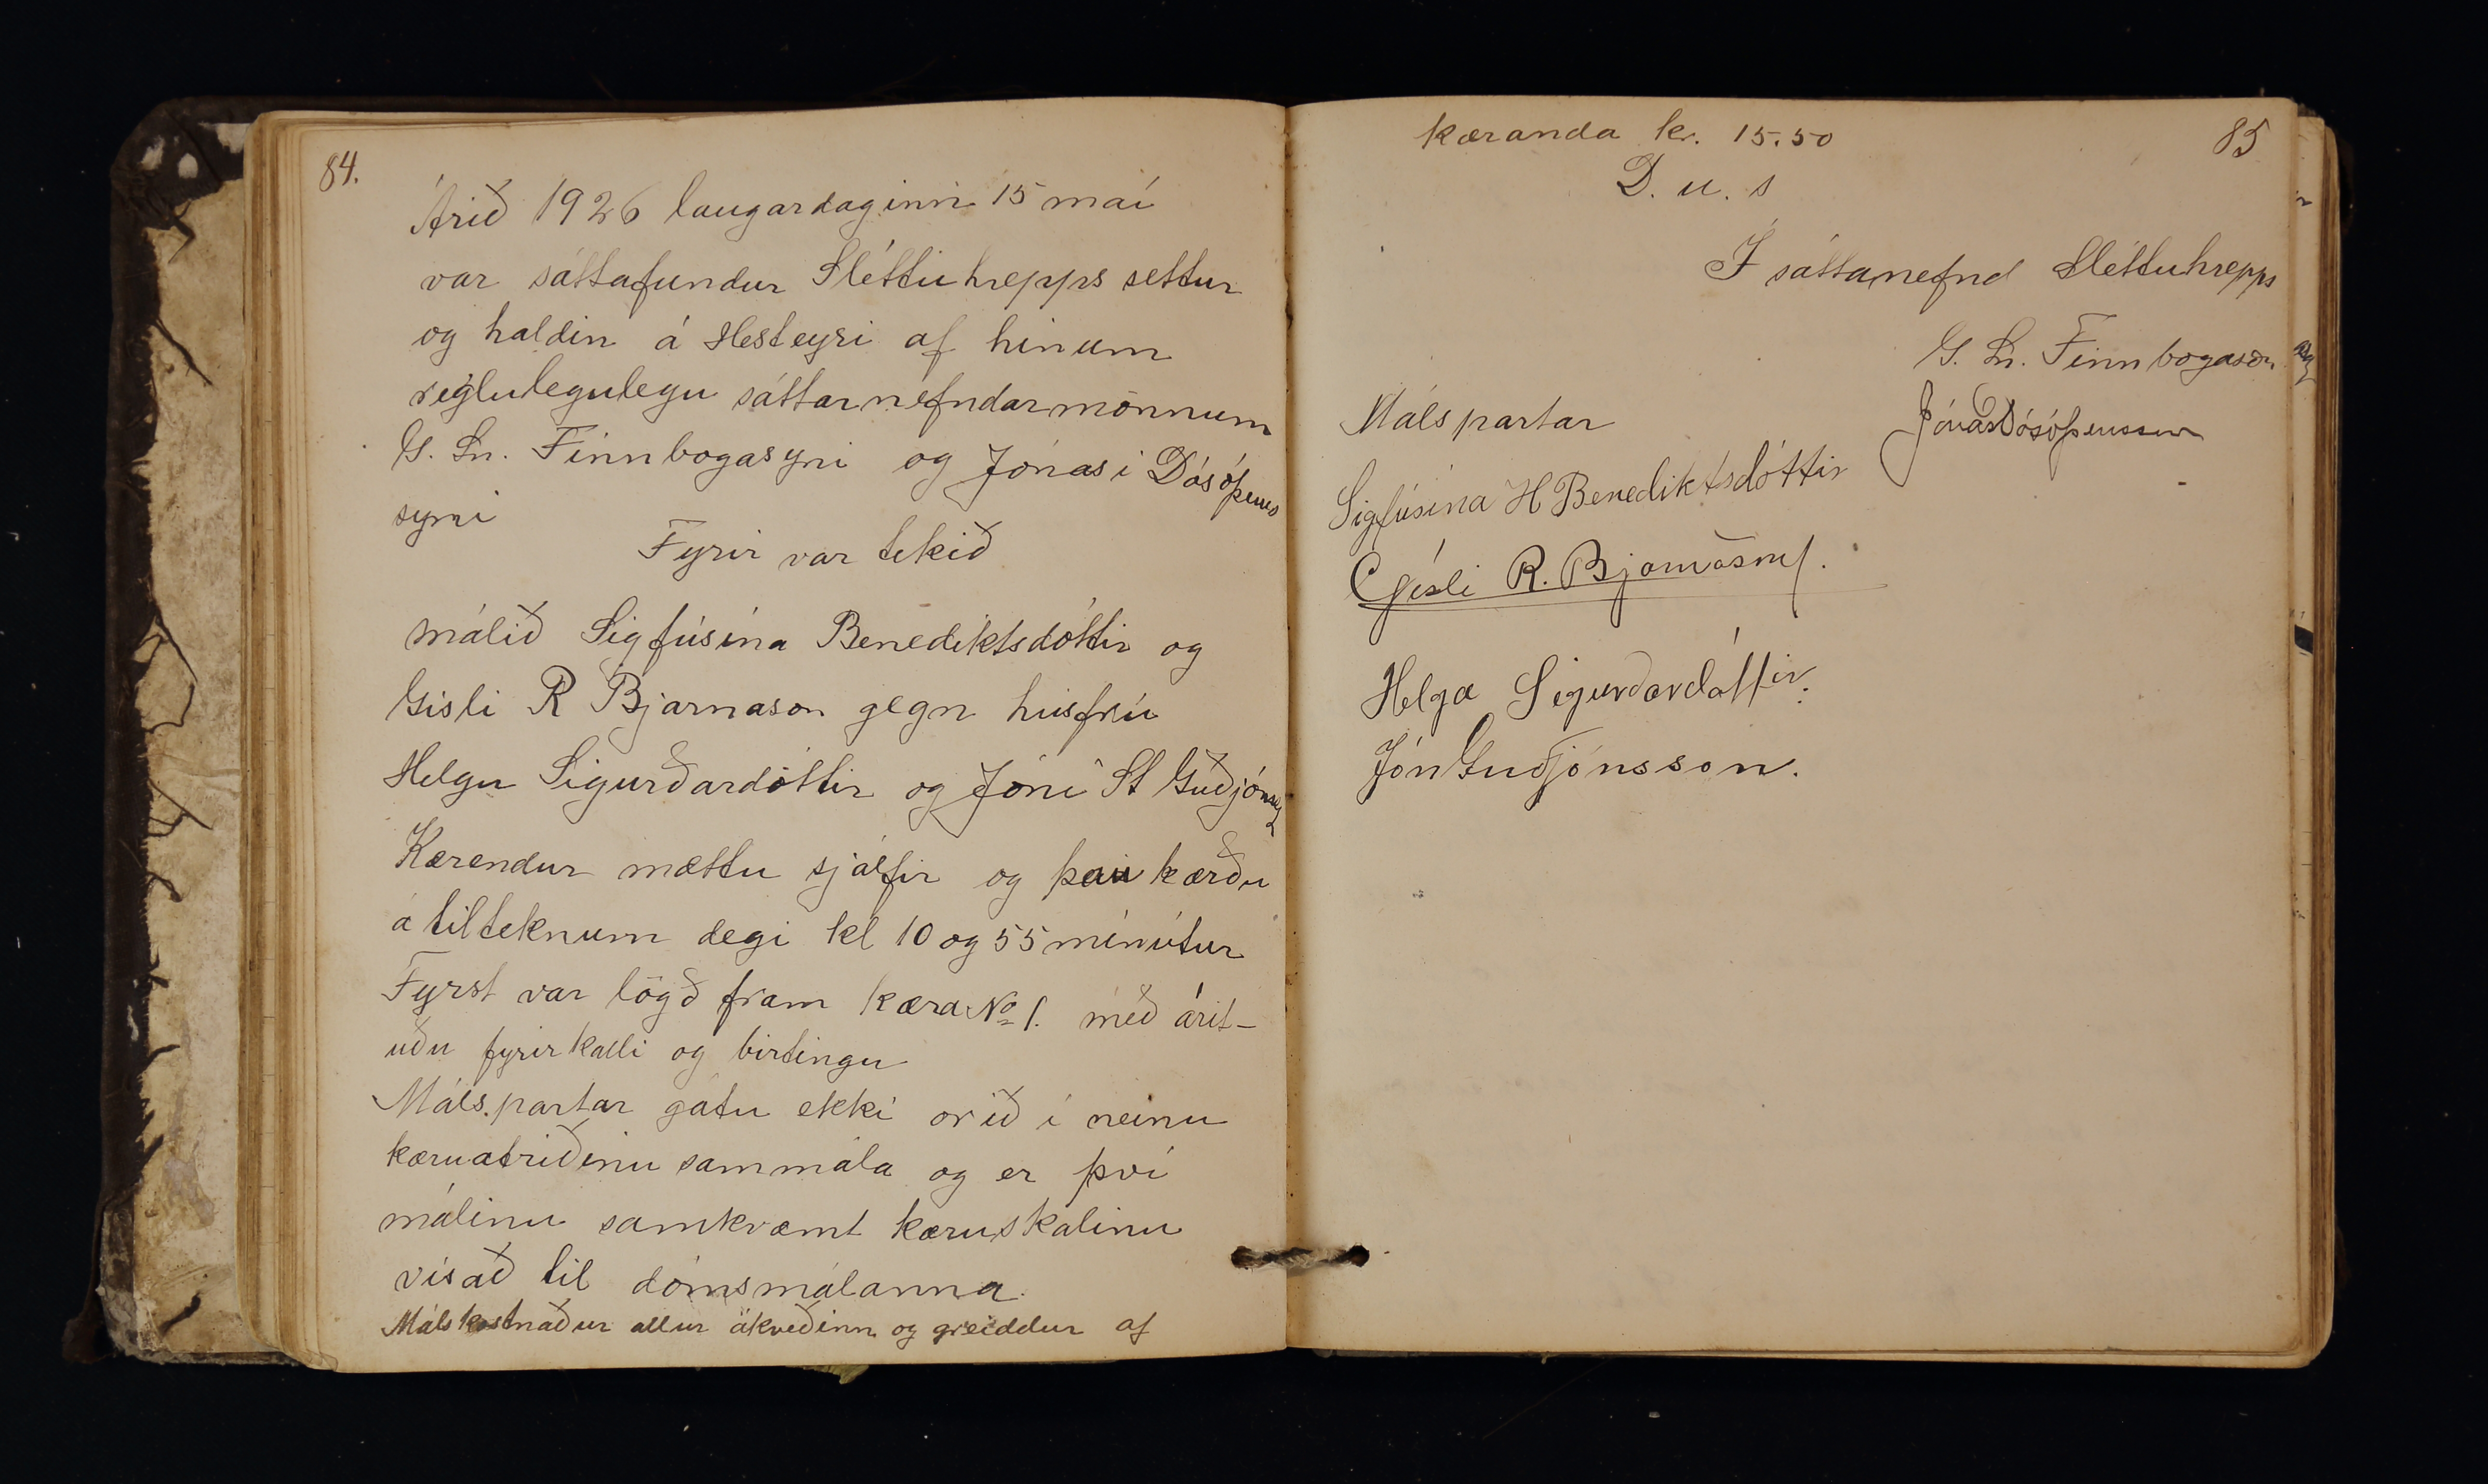 84.
Árið 1926 laugardaginn 15 maí
var sáttafundur Sléttuhrepps settur
og haldin á Hesteyri af hinum
reglulegulegu sáttarnefndarmönnum
G. Sn. Finnbogasyni og Jónasi Dósóþeus
syni
Fyrir var tekið
málið Sigfúsína Benediktsdóttir og
Gísli R Bjarnason gegn húsfrú
Helgu Sigurðardóttir og Jóni St Guðjónss
Kærendur mættu sjálfir og þau kærðu
á tilteknum degi kl 10 og 55 mínútur
Fyrst var lögð fram kæra No 1. með árit-
uðu fyrirkalli og birtingu
Málspartar gátu ekki orið í neinu
kæruatriðinu sammála og er því
málinu samkvæmt kæruskalinu
vísað til dómsmálanna.
Málskostnaður allur ákveðinn og greiddur af
85
kæranda kr. 15.50
D. u. s
Í sáttanefnd Sléttuhrepps
G. Sn. Finnbogason
Jónas Dósóþeusson
Málspartar
Sigfúsína H Benediktsdóttir
Gísli R. Bjarnason.
Helga Sigurðardóttir.
Jón Guðjónsson.